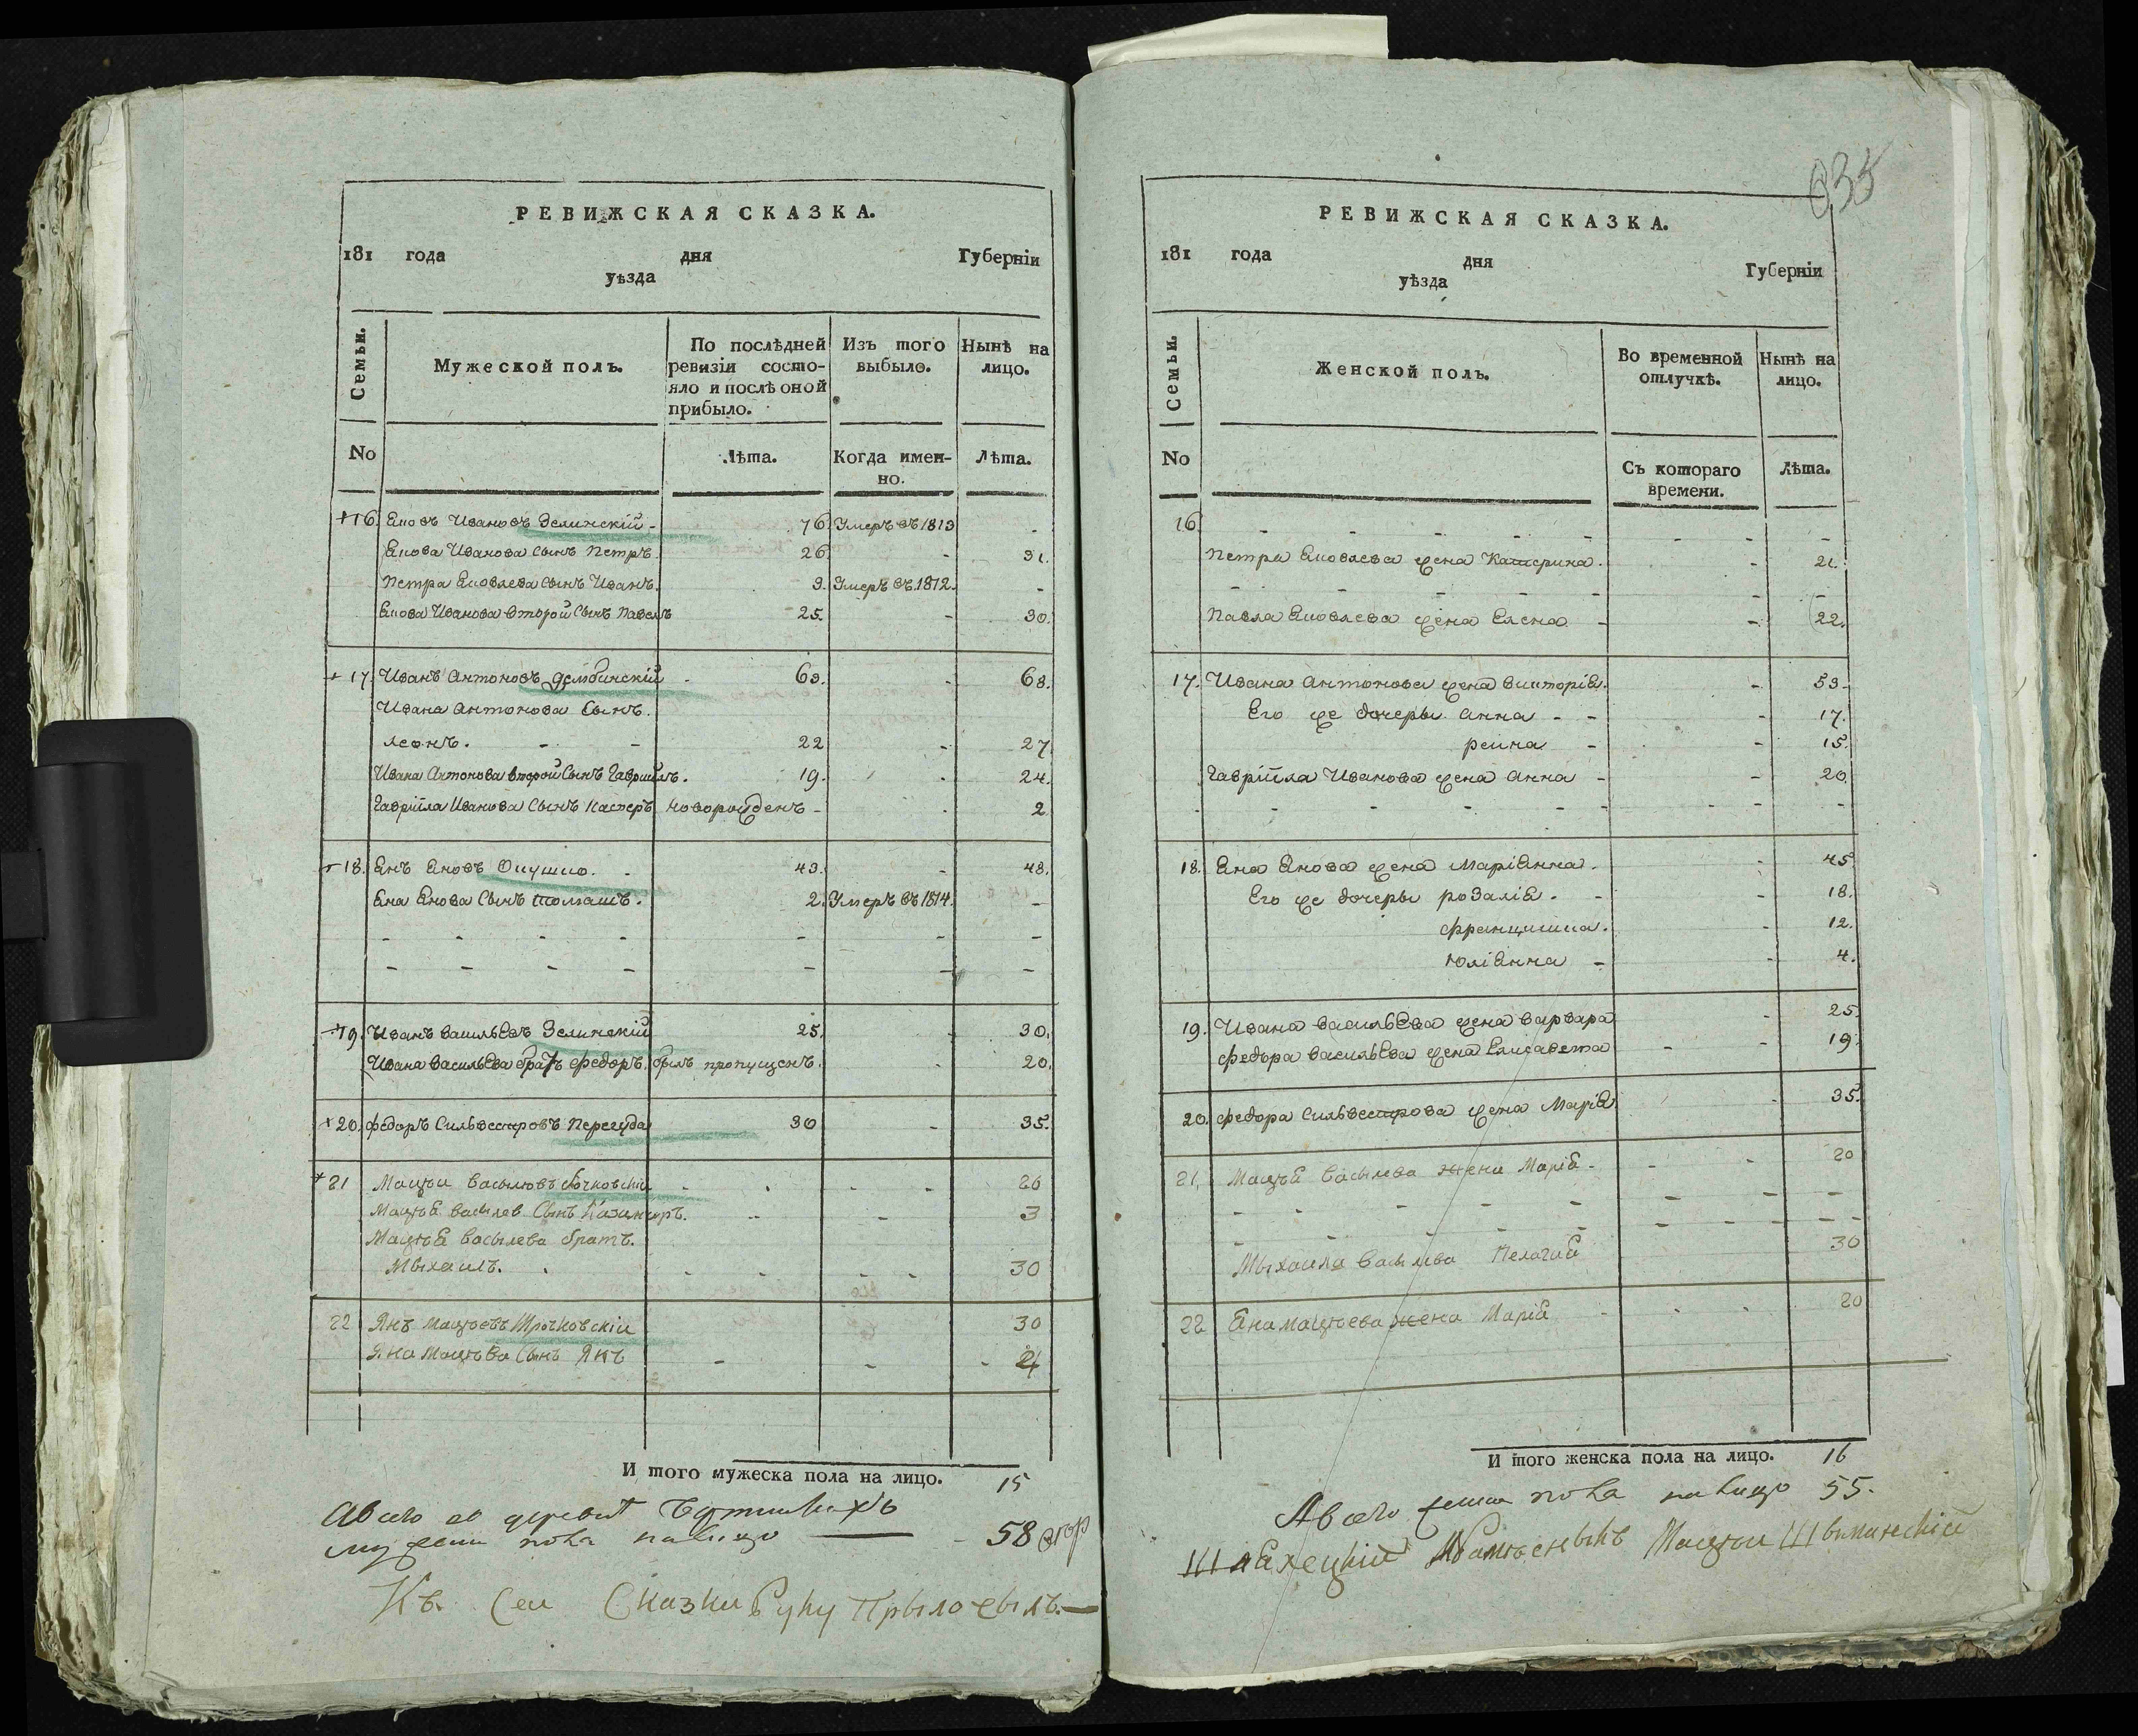 РЕВИЖСКАЯ СКАЗКА.
181 года дня Губерніи
уѣзда
Семьи. Мужеской полъ. По послѣдней ревизіи состояло и послѣ оной прибыло. Изъ того выбыло. Нынѣ на лицо.
No Лѣта. Когда именно. Лѣта.
16. Яковъ Ивановъ Зелинскій - 76. Умеръ въ 1813 -
Якова Иванова Сынъ Петръ. 26 - 31.
Петра Яковлева Сынъ Иванъ. 9. Умеръ въ 1812. -
Якова Иванова второй Сынъ Павелъ 25. - 30.
17. Иванъ Антоновъ - 63. - 68.
Ивана Антонова Сынъ.
Леонъ. - - 22 - 27
Ивана Антонова второй Сынъ Гавріилъ. 19. - 24.
Гавріила Иванова Сынъ Касперъ новорожденъ - - 2
18. Янъ Яновъ - 43. - 48.
Яна Янова Сынъ Томашъ. 2. Умеръ въ 1814. -
- - - - - - -
- - - - - - -
19. Иванъ Васильевъ Зелинскій 25. - 30.
Ивана Васильева братъ Федоръ. былъ пропущенъ. - 20.
20. Федоръ Сильвестровъ Перегуда 30 - 35.
21 Мацѣй Васылювъ - - - - 26
Мацѣя Василев Сынъ Казимеръ. - - 3
Мацѣя Васылева братъ.
Мыхаилъ. - - - - - 30
22 Янъ Мацѣевъ 30
Яна Мацѣва Сынъ Янъ - - -
И того мужеска пола на лицо. 15
А всего въ деревнѣ
мужеска пола налицо - 58
Къ. Сеи Сказки Руку Прыложылъ.—
РЕВИЖСКАЯ СКАЗКА.
181 года дня Губерніи
уѣзда
Семьи. Женской полъ. Во временной отлучкѣ. Нынѣ на лицо.
No Съ котораго времени. Лѣта.
16. - - - - - - - -
Петра Яковлева жена Катерина. - 21.
- - - - - - - -
Павла Яковлева жена Елена - - 22.
17. Ивана Антонова жена Викторія. - 53.
Его же дочеры Анна - - - 17.
реина - - 15.
Гавріила Иванова жена Анна - - 20.
- - - - - - - -
18. Яна Янова жена Маріянна. - 45.
Его же дочеры розалія. - - 18.
францишка. - 12.
юліянна - - 4.
19. Ивана Васильева жена варвара - 25
Федора Васильева жена Елисавета - - 19.
20. Федора Сильвестрова жена Марія. - 35.
21. Мацѣя Васылева жена Марія - - - 20
- - - - - - - -
- - - - - - - -
Мыхаила Васылева Пелагия 30
22 Яна Мацѣева жена Марія - - - 20
И того женска пола на лицо. 16
А всего женска пола на лицо 55.
Мацѣи